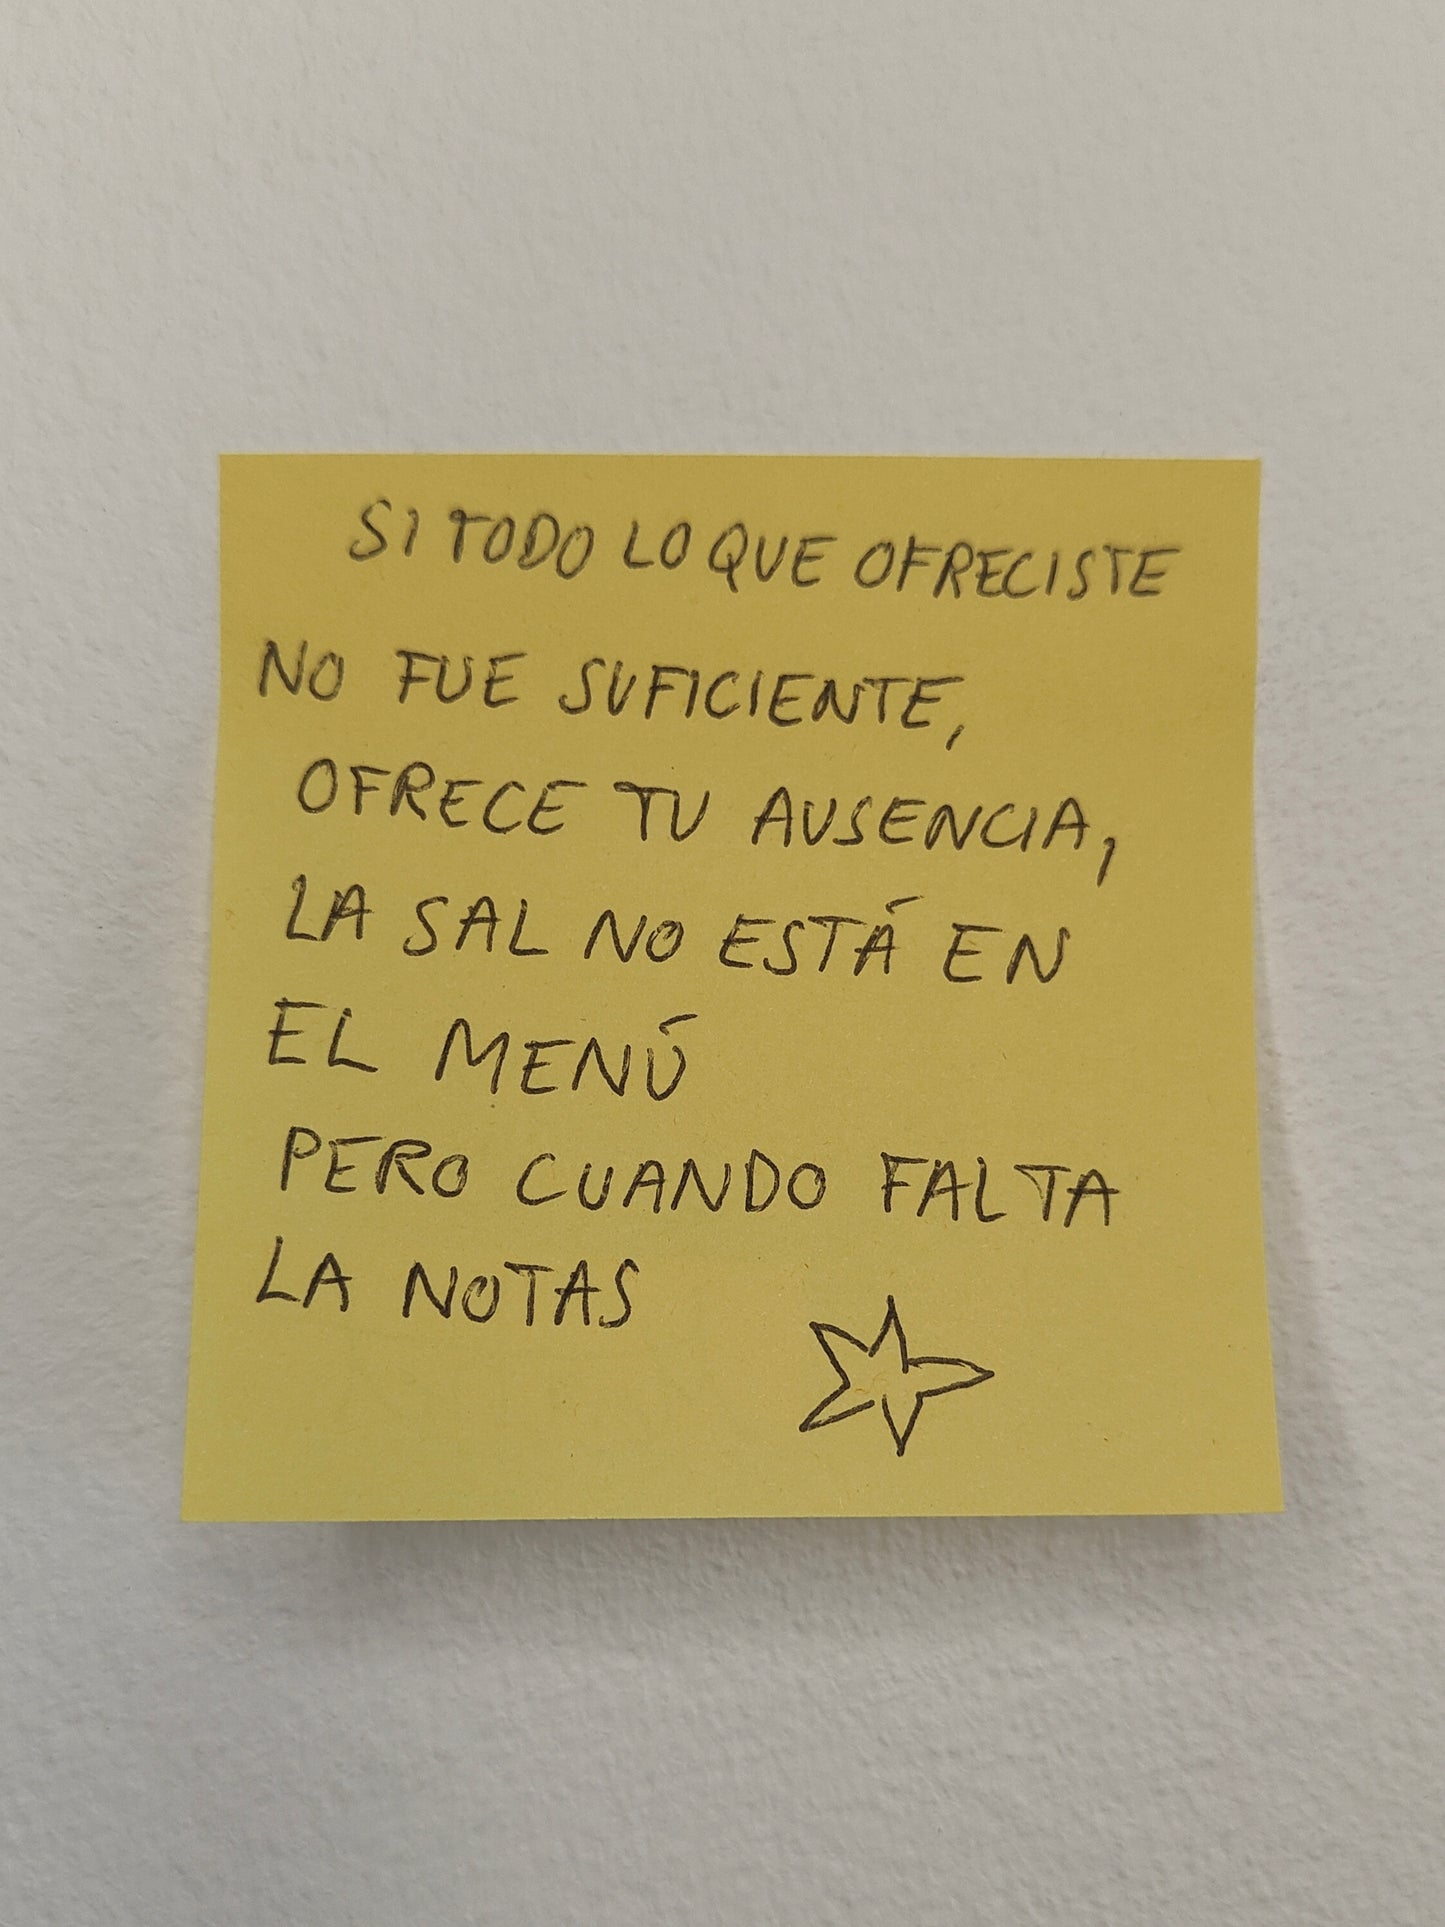 SI TODO LO QUE OFRECISTE
NO FUE SUFICIENTE,
OFRECE TU AUSENCIA,
LA SAL NO ESTÁ EN
EL MENÚ
PERO CUANDO FALTA
LA NOTAS